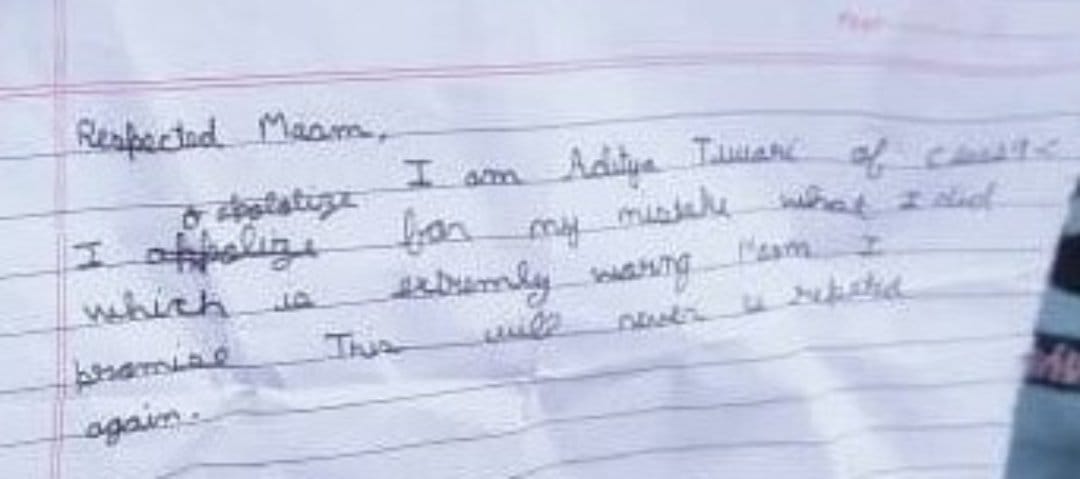 Respected Meam,
I am Aditya Tiwari of
apolotize
I appolize for my mistake what I did
which is extremly warng Meam I
promise This will never is repeted
again.